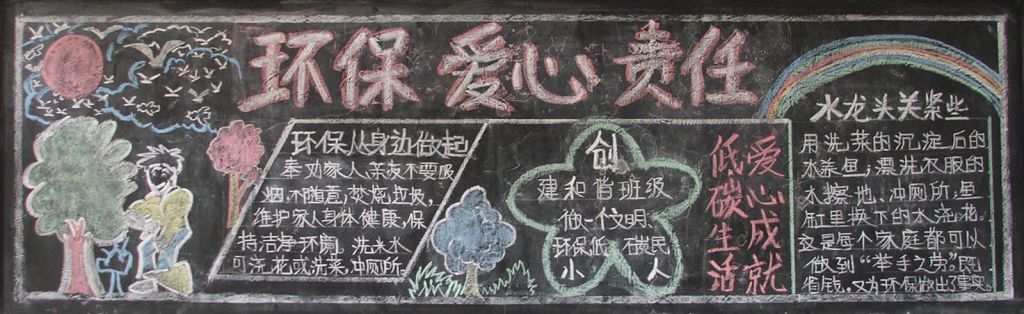 环保 爱心 责任
环保从身边做起
奉劝家人、亲友不要吸
烟,不随意焚烧垃圾,
维护家人身体健康,保
持洁净环境,洗米水
可浇花或洗菜,冲厕所。
创
建和谐班级
做一个文明、
环保低碳
小 人
低碳生活
爱心成就
水龙头关紧些
用洗菜的沉淀后的
水养鱼,漂洗衣服的
水擦地、冲厕所,鱼
缸里换下的水浇花。
这是每个家庭都可以
做到“举手之劳”。既
省钱,又为环保做出了事实。